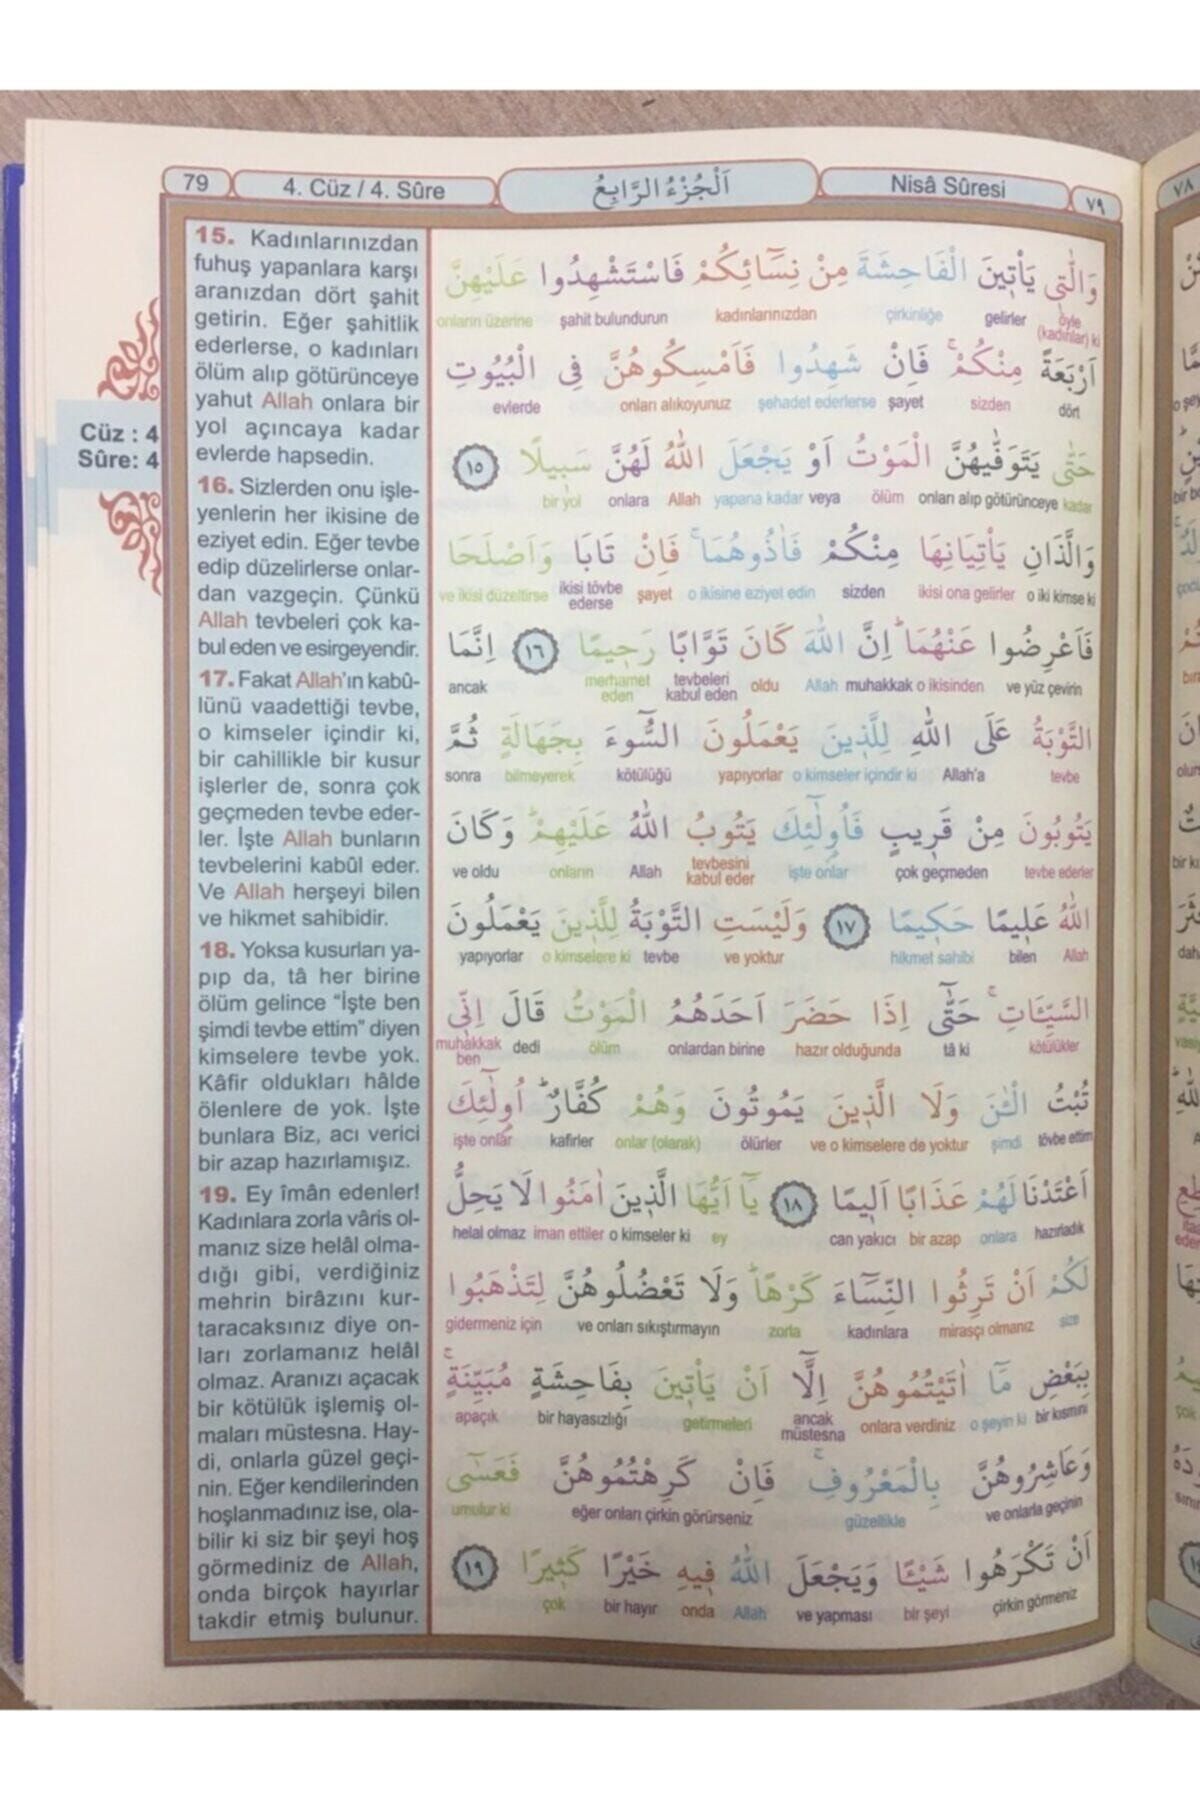 79
4. Cüz / 4. Sûre
اَلْجُزْءُ الرَّابِعُ
Nisâ Sûresi
٧٩
15. Kadınlarınızdan
fuhuş yapanlara karşı
aranızdan dört şahit
getirin. Eğer şahitlik
ederlerse, o kadınları
ölüm alıp götürünceye
yahut Allah onlara bir
yol açıncaya kadar
evlerde hapsedin.
16. Sizlerden onu işle-
yenlerin her ikisine de
eziyet edin. Eğer tevbe
edip düzelirlerse onlar-
dan vazgeçin. Çünkü
Allah tevbeleri çok ka-
bul eden ve esirgeyendir.
17. Fakat Allah'ın kabû-
lünü vaadettiği tevbe,
o kimseler içindir ki,
bir cahillikle bir kusur
işlerler de, sonra çok
geçmeden tevbe eder-
ler. İşte Allah bunların
tevbelerini kabûl eder.
Ve Allah herşeyi bilen
ve hikmet sahibidir.
18. Yoksa kusurları ya-
pıp da, tâ her birine
ölüm gelince "İşte ben
şimdi tevbe ettim" diyen
kimselere tevbe yok.
Kâfir oldukları hâlde
ölenlere de yok. İşte
bunlara Biz, acı verici
bir azap hazırlamışız.
19. Ey îmân edenler!
Kadınlara zorla vâris ol-
manız size helâl olma-
dığı gibi, verdiğiniz
mehrin birâzını kur-
taracaksınız diye on-
ları zorlamanız helâl
olmaz. Aranızı açacak
bir kötülük işlemiş ol-
maları müstesna. Hay-
di, onlarla güzel geçi-
nin. Eğer kendilerinden
hoşlanmadınız ise, ola-
bilir ki siz bir şeyi hoş
görmediniz de Allah,
onda birçok hayırlar
takdir etmiş bulunur.
Cüz : 4
Sûre: 4
وَالّٰت۪ي يَأْت۪ينَ الْفَاحِشَةَ مِنْ نِسَٓائِكُمْ فَاسْتَشْهِدُوا عَلَيْهِنَّ
onların üzerine şahit bulundurun kadınlarınızdan çirkinliğe gelirler öyle (kadınlar) ki
اَرْبَعَةً مِنْكُمْۚ فَاِنْ شَهِدُوا فَاَمْسِكُوهُنَّ فِي الْبُيُوتِ
evlerde onları alıkoyunuz şehadet ederlerse şayet sizden dört
حَتّٰى يَتَوَفّٰيهُنَّ الْمَوْتُ اَوْ يَجْعَلَ اللّٰهُ لَهُنَّ سَب۪يلًا ١٥
bir yol onlara Allah yapana kadar veya ölüm onları alıp götürünceye kadar
وَالَّذَانِ يَأْتِيَانِهَا مِنْكُمْ فَاٰذُوهُمَاۚ فَاِنْ تَابَا وَاَصْلَحَا
ve ikisi düzeltirse ikisi tövbe ederse şayet o ikisine eziyet edin sizden ikisi ona gelirler o iki kimse ki
فَاَعْرِضُوا عَنْهُمَاۜ اِنَّ اللّٰهَ كَانَ تَوَّابًا رَح۪يمًا ١٦ اِنَّمَا
ancak merhamet eden tevbeleri kabul eden oldu Allah muhakkak o ikisinden ve yüz çevirin
التَّوْبَةُ عَلَى اللّٰهِ لِلَّذ۪ينَ يَعْمَلُونَ السُّٓوءَ بِجَهَالَةٍ ثُمَّ
sonra bilmeyerek kötülüğü yapıyorlar o kimseler içindir ki Allah'a tevbe
يَتُوبُونَ مِنْ قَر۪يبٍ فَاُو۬لٰٓئِكَ يَتُوبُ اللّٰهُ عَلَيْهِمْۜ وَكَانَ
ve oldu onların Allah tevbesini kabul eder işte onlar çok geçmeden tevbe ederler
اللّٰهُ عَل۪يمًا حَك۪يمًا ١٧ وَلَيْسَتِ التَّوْبَةُ لِلَّذ۪ينَ يَعْمَلُونَ
yapıyorlar o kimselere ki tevbe ve yoktur hikmet sahibi bilen Allah
السَّيِّـَٔاتِۚ حَتّٰٓى اِذَا حَضَرَ اَحَدَهُمُ الْمَوْتُ قَالَ اِنّ۪ي
muhakkak ben dedi ölüm onlardan birine hazır olduğunda tâ ki kötülükler
تُبْتُ الْـٰٔنَ وَلَا الَّذ۪ينَ يَمُوتُونَ وَهُمْ كُفَّارٌۜ اُو۬لٰٓئِكَ
işte onlar kafirler onlar (olarak) ölürler ve o kimselere de yoktur şimdi tövbe ettim
اَعْتَدْنَا لَهُمْ عَذَابًا اَل۪يمًا ١٨ يَٓا اَيُّهَا الَّذ۪ينَ اٰمَنُوا لَا يَحِلُّ
helal olmaz iman ettiler o kimseler ki ey can yakıcı bir azap onlara hazırladık
لَكُمْ اَنْ تَرِثُوا النِّسَٓاءَ كَرْهًاۜ وَلَا تَعْضُلُوهُنَّ لِتَذْهَبُوا
gidermeniz için ve onları sıkıştırmayın zorla kadınlara mirasçı olmanız size
بِبَعْضِ مَٓا اٰتَيْتُمُوهُنَّ اِلَّٓا اَنْ يَأْت۪ينَ بِفَاحِشَةٍ مُبَيِّنَةٍۚ
apaçık bir hayasızlığı getirmeleri ancak müstesna onlara verdiniz o şeyin ki bir kısmını
وَعَاشِرُوهُنَّ بِالْمَعْرُوفِۚ فَاِنْ كَرِهْتُمُوهُنَّ فَعَسٰٓى
umulur ki eğer onları çirkin görürseniz güzellikle ve onlarla geçinin
اَنْ تَكْرَهُوا شَيْـًٔا وَيَجْعَلَ اللّٰهُ ف۪يهِ خَيْرًا كَث۪يرًا ١٩
çok bir hayır onda Allah ve yapması bir şeyi çirkin görmeniz
٧٨